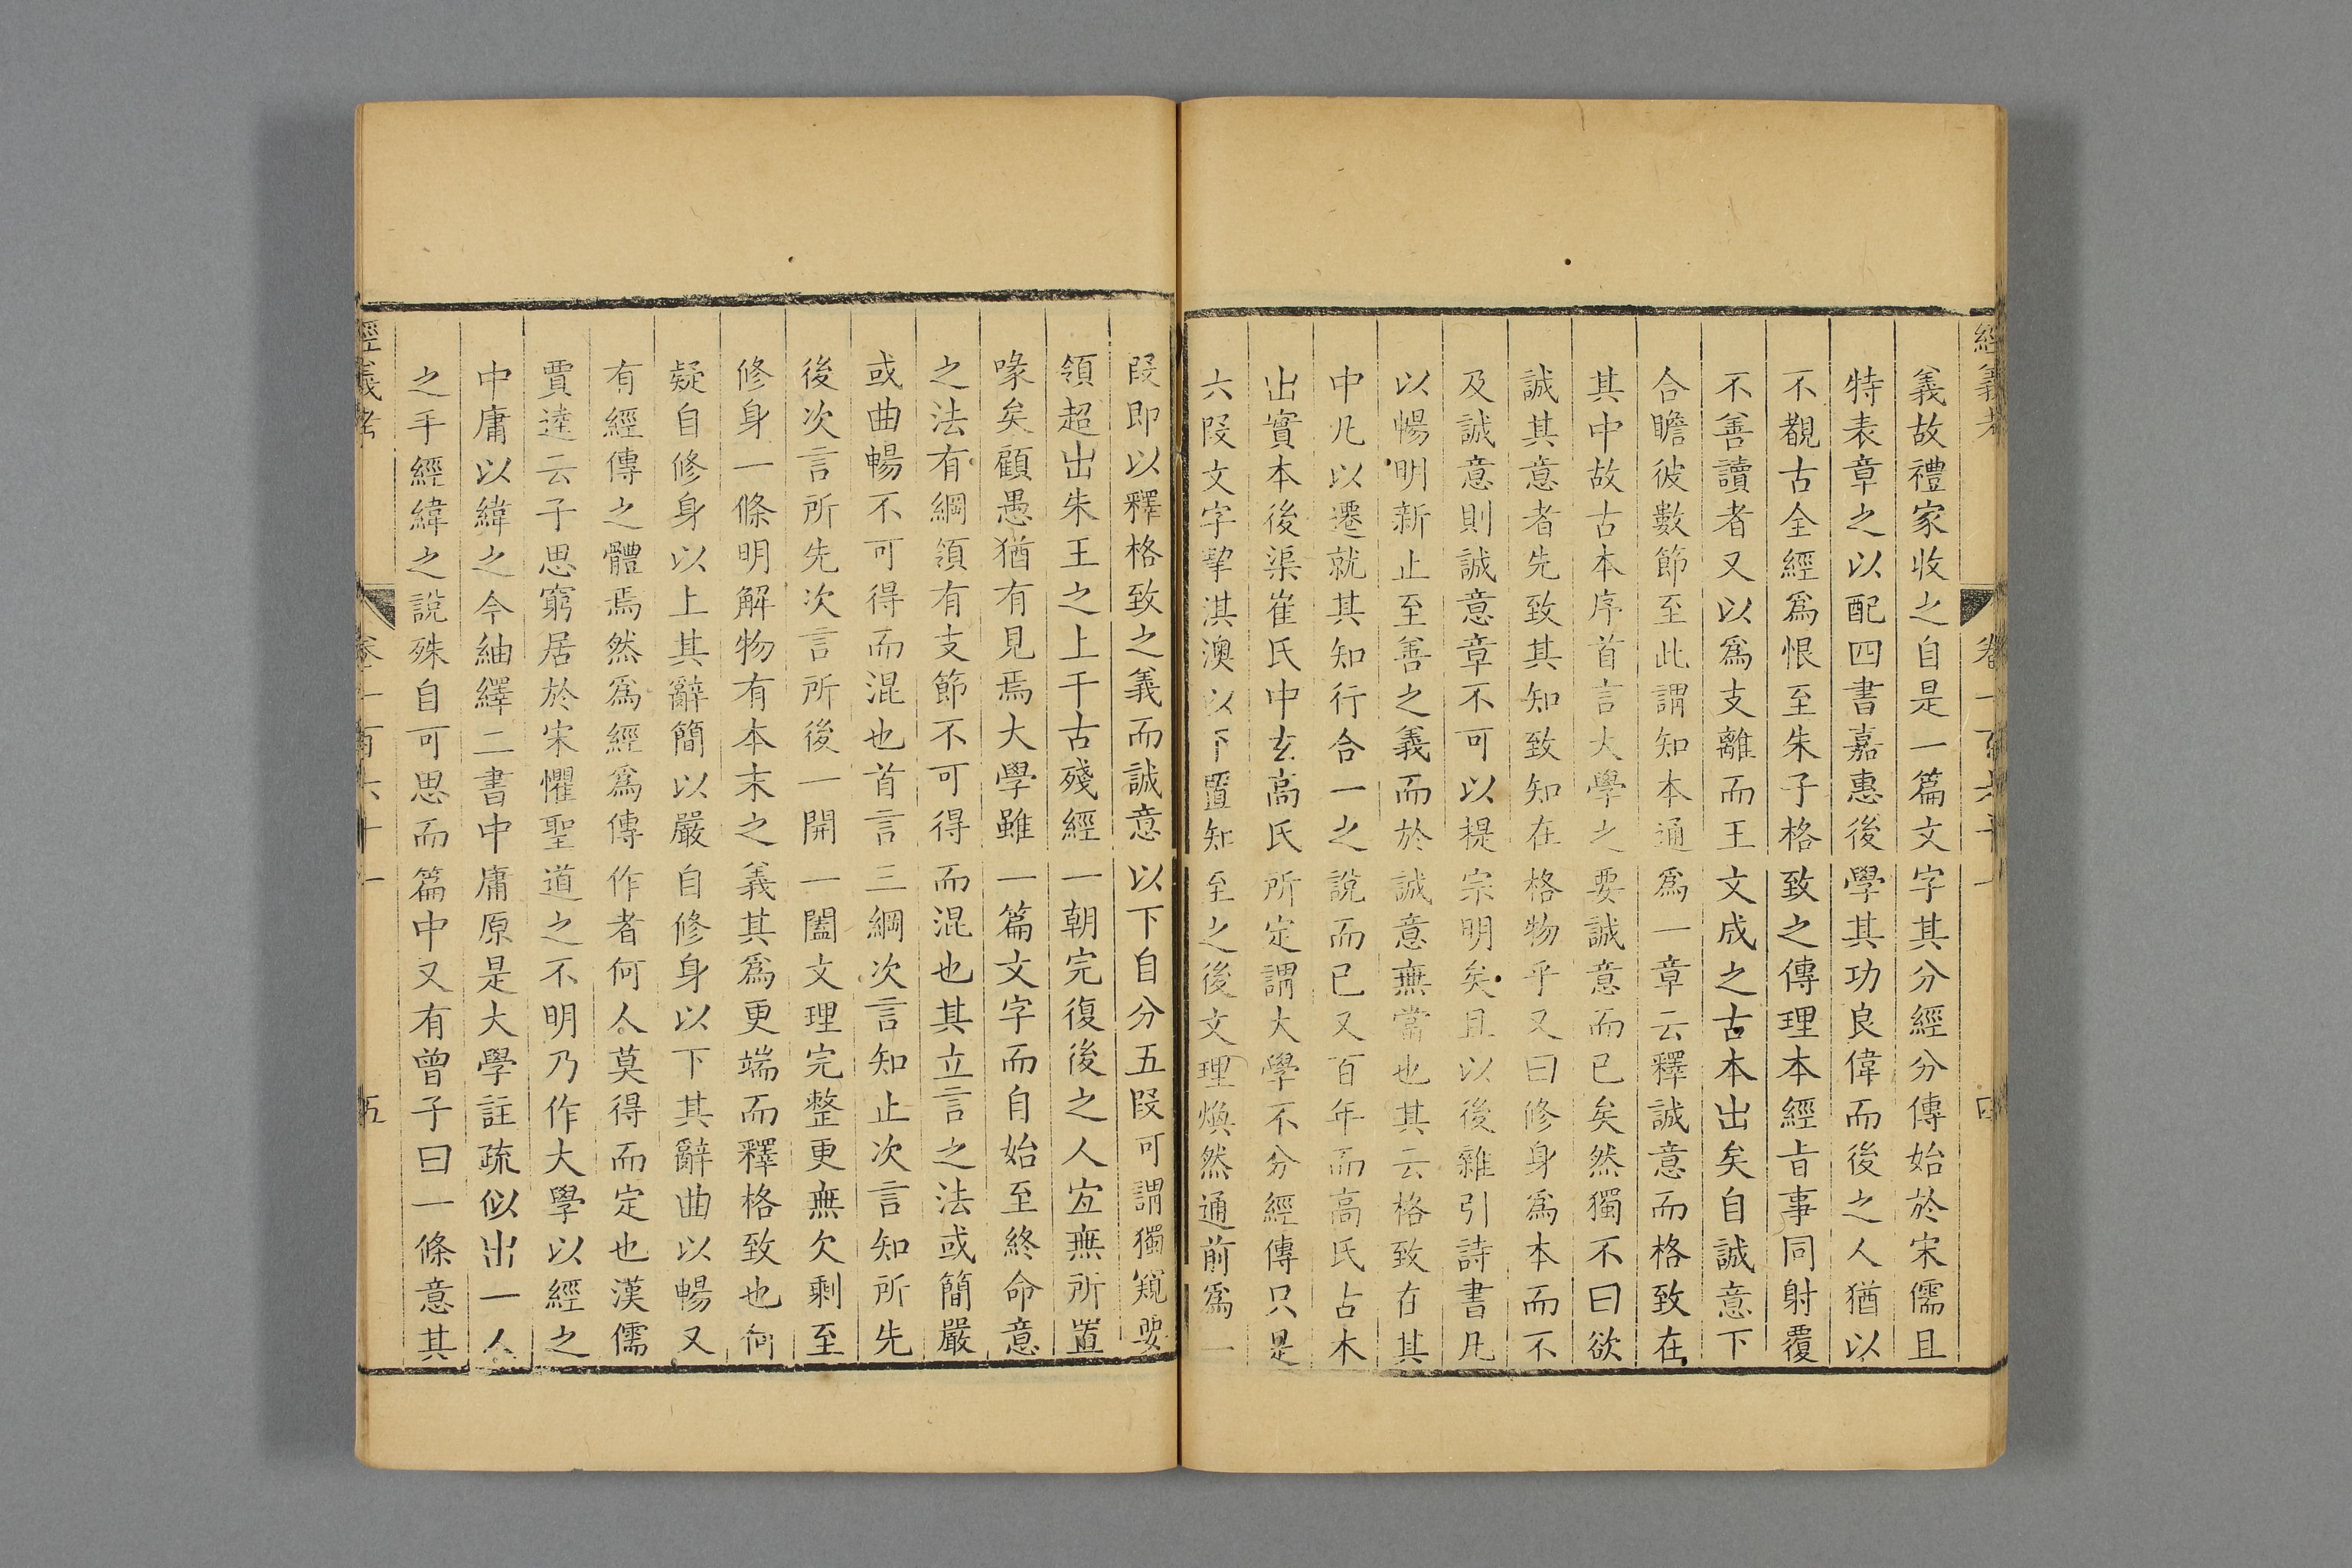 經義考 卷一百六十一 四
義故禮家收之自是一篇文字其分經分傳始於宋儒且
特表章之以配四書嘉惠後學其功良偉而後之人猶以
不覩古全經爲恨至朱子格致之傳理本經旨事同射覆
不善讀者又以爲支離而王文成之古本出矣自誠意下
合瞻彼數節至此謂知本通爲一章云釋誠意而格致在
其中故古本序首言大學之要誠意而已矣然獨不曰欲
誠其意者先致其知致知在格物乎又曰修身爲本而不
及誠意則誠意章不可以提宗明矣且以後雜引詩書凡
以暢明新止至善之義而於誠意無當也其云格致在其
中凡以遷就其知行合一之說而已又百年而高氏占本
出實本後渠崔氏中玄高氏所定謂大學不分經傳只是
六段文字挈淇澳以下置知至之後文理煥然通前爲一
段即以釋格致之義而誠意以下自分五段可謂獨窺要
領超出朱王之上千古殘經一朝完復後之人宜無所置
喙矣顧愚猶有見焉大學雖一篇文字而自始至終命意
之法有綱領有支節不可得而混也其立言之法或簡嚴
或曲暢不可得而混也首言三綱次言知止次言知所先
後次言所先次言所後一開一闔文理完整更無欠剩至
修身一條明解物有本末之義其爲更端而釋格致也何
疑自修身以上其辭簡以嚴自修身以下其辭曲以暢又
有經傳之體焉然爲經爲傳作者何人莫得而定也漢儒
賈逵云子思窮居於宋懼聖道之不明乃作大學以經之
中庸以緯之今紬繹二書中庸原是大學註疏似出一人
之手經緯之說殊自可思而篇中又有曾子曰一條意其
經義考 卷一百六十一 五